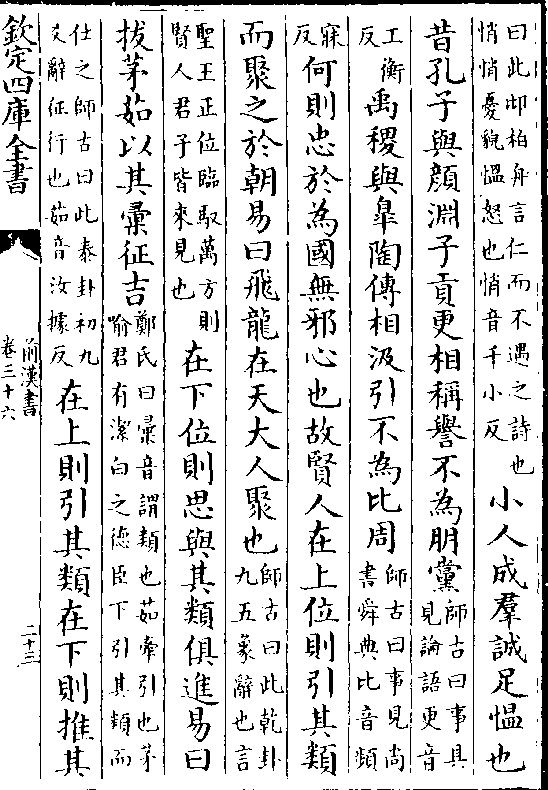 曰此邶柏舟言仁而不遇之詩也
悄悄憂貌愠怒也悄音千小反
小人成羣誠足愠也
昔孔子與顔淵子貢更相稱譽不為朋黨
師古曰事具
見論語更音
工衡
反
禹稷與臯陶傳相汲引不為比周
師古曰事見尚
書舜典比音頻
寐
反
何則忠於為國無邪心也故賢人在上位則引其類
而聚之於朝易曰飛龍在天大人聚也
師古曰此乾卦
九五象辭也言
聖王正位臨馭萬方則
賢人君子皆來見也
在下位則思與其類俱進易曰
拔茅茹以其彚征吉
鄭氏曰彚音謂類也茹牽引也茅
喻君有潔白之德臣下引其類而
仕之師古曰此泰卦初九
爻辭征行也茹音汝據反
在上則引其類在下則推其
欽定四庫全書
前漢書
卷三十六
二十三